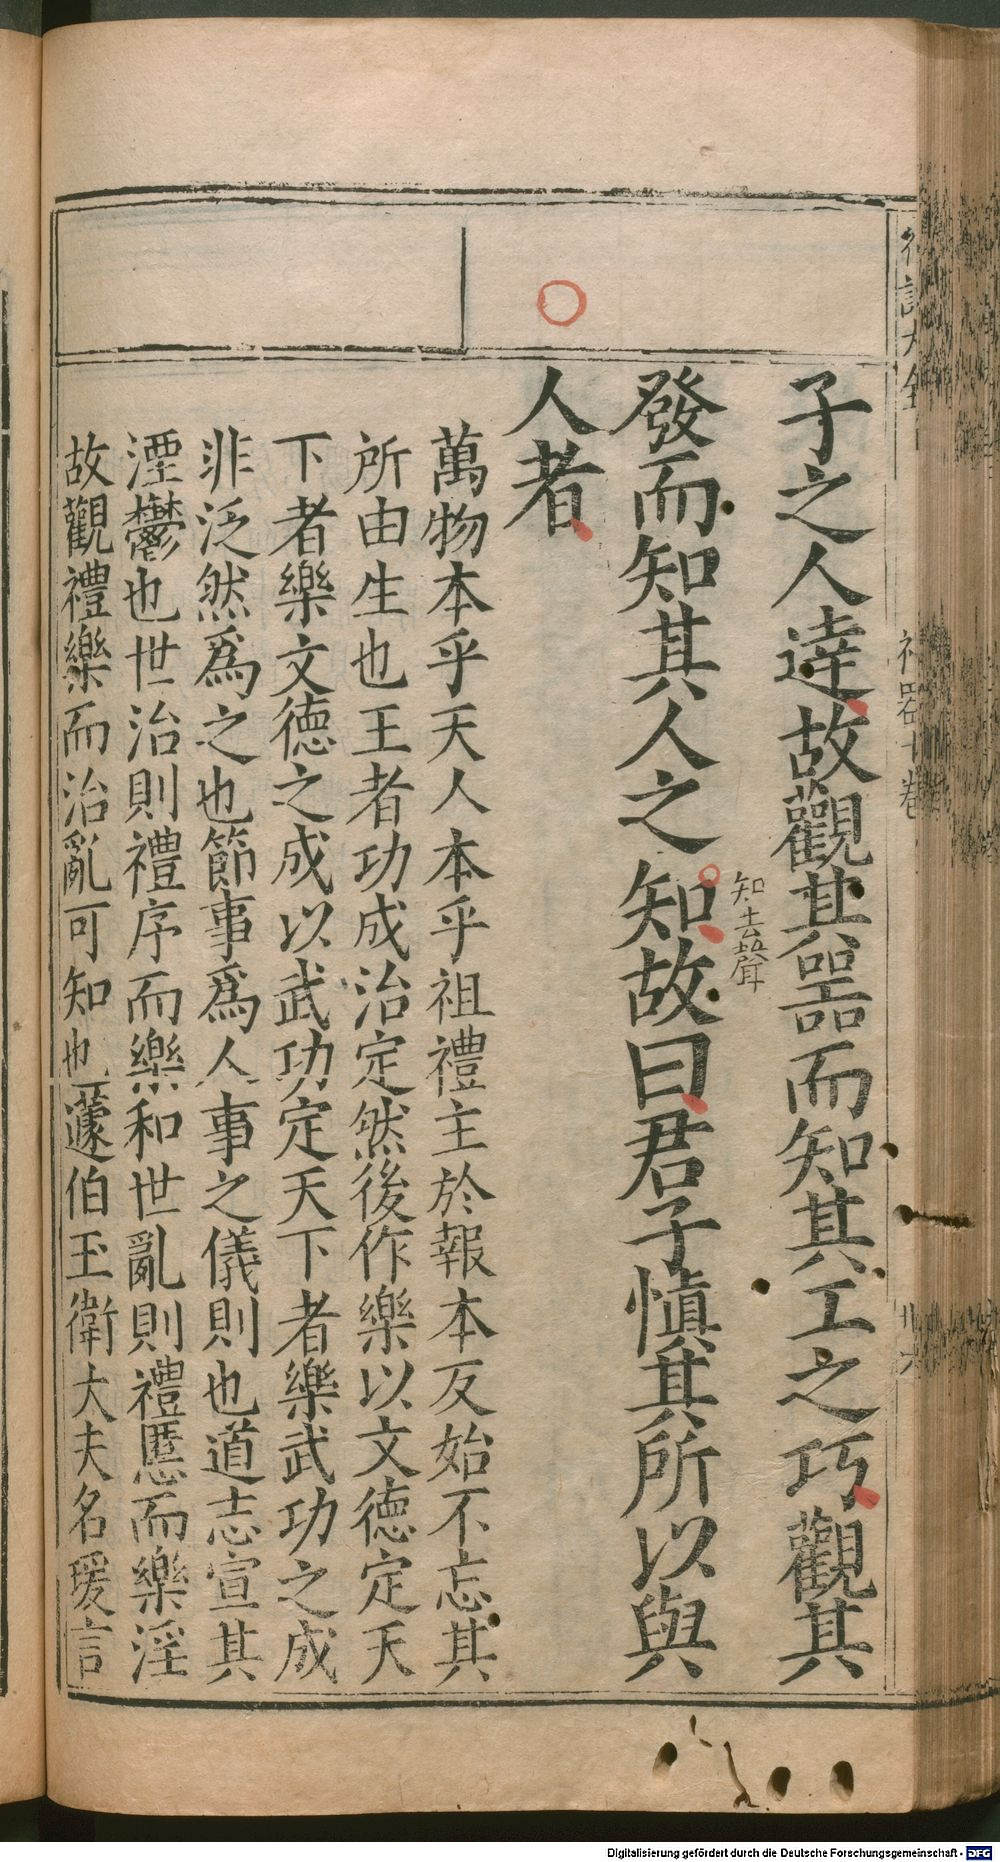 子之人達故觀其器而知其工之巧觀其
知去聲
發而知其人之知故曰君子慎其所以與
人者
萬物本乎天人本乎祖禮主於報本反始不忘其
所由生也王者功成治定然後作樂以文德定天
下者樂文德之成以武功定天下者樂武功之成
非泛然爲之也節事爲人事之儀則也道志宣其
湮鬱也世治則禮序而樂和世亂則禮慝而樂淫
故觀禮樂而治亂可知也蘧伯玉衛大夫名瑗言
禮器十卷
Digitalisierung gefördert durch die Deutsche Forschungsgemeinschaft - DFG